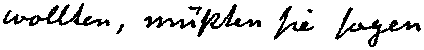 wollten, müßten sie sagen